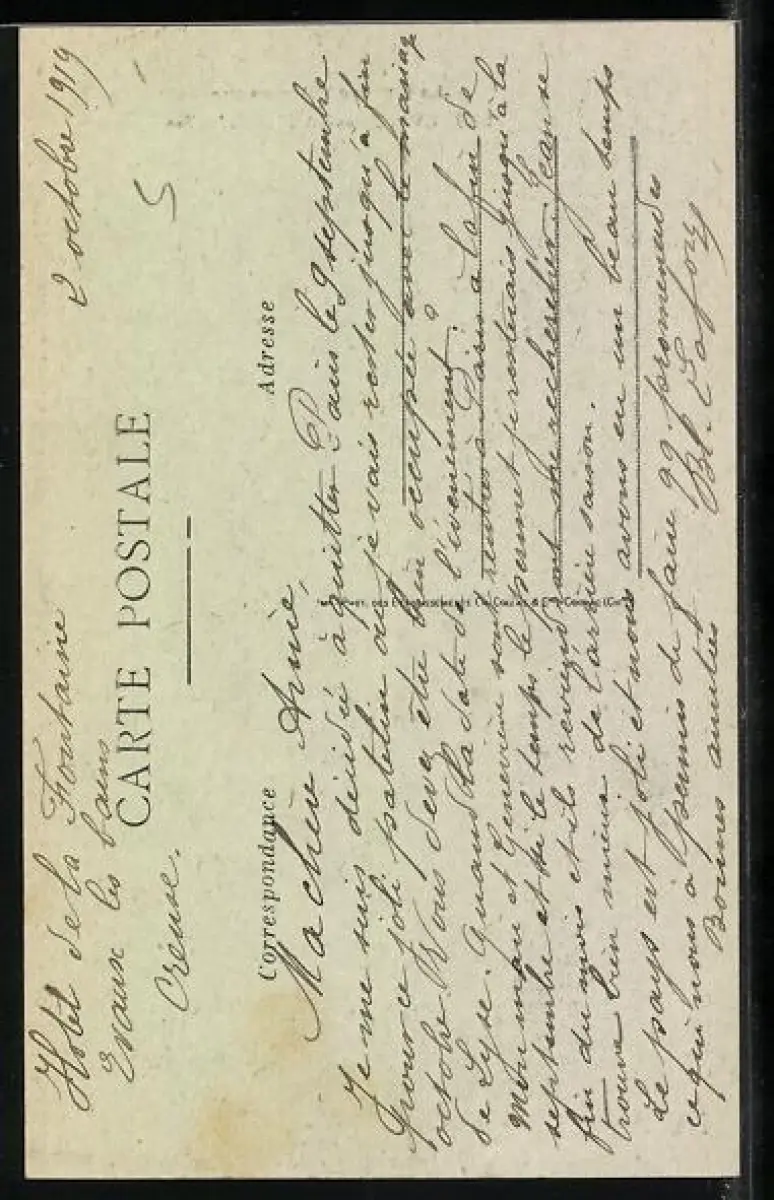 Hotel de la Fontaine
2 octobre 1919
Evaux les bains
CARTE POSTALE
Creuse.
5
Correspondance
Adresse
Ma chère Amie,
Je me suis décidée à quitter Paris le 9 septembre
pour ce joli patelin où je vais rester jusqu'à fin
octobre. Vous devez être bien occupée avec le mariage
de Lyse. Quand la date de l'évènement ?
Mon mari et Geneviève sont rentrés à Paris à la fin de
septembre et si le temps le permet je resterais jusqu'à la
fin du mois et ils reviendront me rechercher. Jean se
trouve bien mieux de l'arrière saison.
Le pays est joli et nous avons eu un beau temps
ce qui nous a permis de faire qq. promenades
Bonnes amitiés
Bl. Lafon